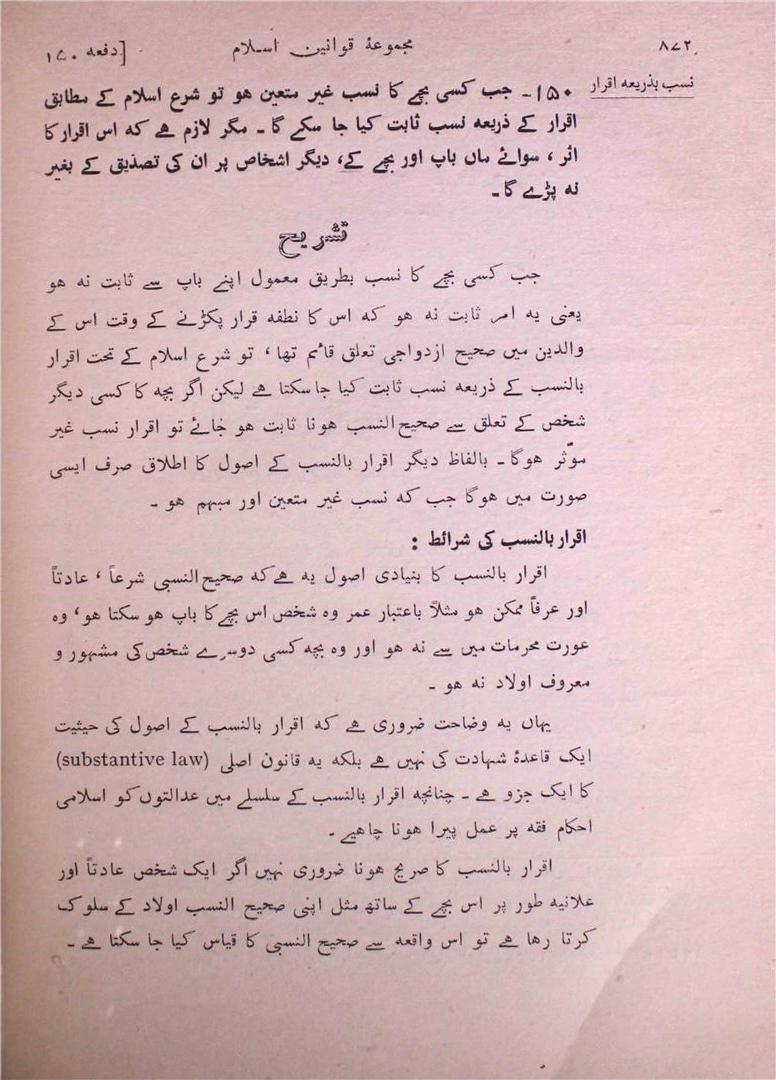 ۸۷۲ مجموعۂ قوانین اسلام [دفعہ ۱۵۰
نسب بذریعہ اقرار
۱۵۰۔ جب کسی بچے کا نسب غیر متعین ہو تو شرع اسلام کے مطابق
اقرار کے ذریعہ نسب ثابت کیا جا سکے گا ۔ مگر لازم ہے کہ اس اقرار کا
اثر ، سوائے ماں باپ اور بچے کے، دیگر اشخاص پر ان کی تصدیق کے بغیر
نہ پڑے گا ۔
تشریح
جب کسی بچے کا نسب بطریق معمول اپنے باپ سے ثابت نہ ہو
یعنی یہ امر ثابت نہ ہو کہ اس کا نطفہ قرار پکڑنے کے وقت اس کے
والدین میں صحیح ازدواجی تعلق قائم تھا ، تو شرع اسلام کے تحت اقرار
بالنسب کے ذریعہ نسب ثابت کیا جا سکتا ہے لیکن اگر بچہ کا کسی دیگر
شخص کے تعلق سے صحیح النسب ہونا ثابت ہو جائے تو اقرار نسب غیر
موٴثر ہوگا ۔ بالفاظ دیگر اقرار بالنسب کے اصول کا اطلاق صرف ایسی
صورت میں ہوگا جب کہ نسب غیر متعین اور مبہم ہو ۔
اقرار بالنسب کی شرائط :
اقرار بالنسب کا بنیادی اصول یہ ہے کہ صحیح النسبی شرعاً ، عادتاً
اور عرفاً ممکن ہو مثلاً باعتبار عمر وہ شخص اس بچے کا باپ ہو سکتا ہو، وہ
عورت محرمات میں سے نہ ہو اور وہ بچہ کسی دوسرے شخص کی مشہور و
معروف اولاد نہ ہو ۔
یہاں یہ وضاحت ضروری ہے کہ اقرار بالنسب کے اصول کی حیثیت
ایک قاعدۂ شہادت کی نہیں ہے بلکہ یہ قانون اصلی (substantive law)
کا ایک جزو ہے ۔ چنانچہ اقرار بالنسب کے سلسلے میں عدالتوں کو اسلامی
احکام فقہ پر عمل پیرا ہونا چاہیے ۔
اقرار بالنسب کا صریح ہونا ضروری نہیں اگر ایک شخص عادتاً اور
علانیہ طور پر اس بچے کے ساتھ مثل اپنی صحیح النسب اولاد کے سلوک
کرتا رہا ہے تو اس واقعہ سے صحیح النسبی کا قیاس کیا جا سکتا ہے ۔